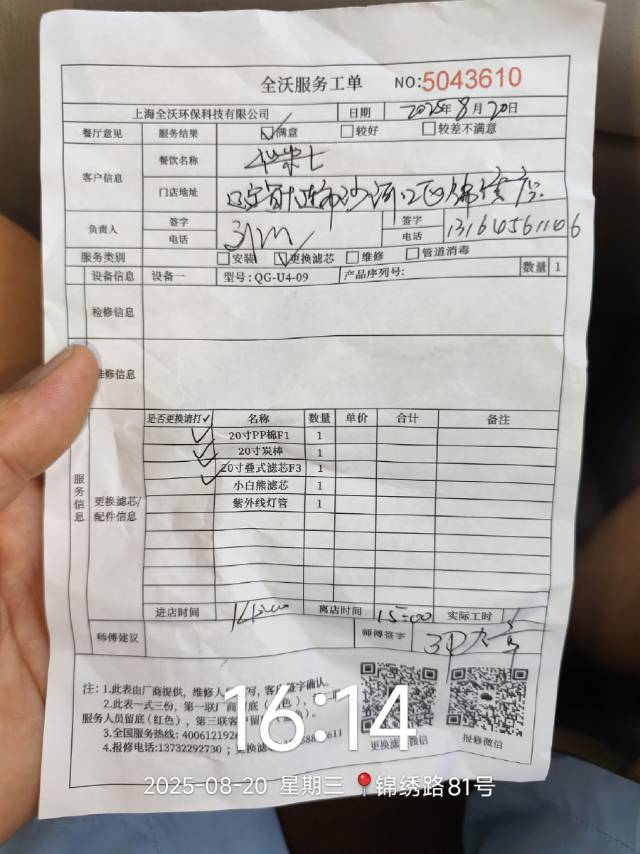 全沃服务工单 NO:5043610
上海全沃环保科技有限公司 日期 2025年8月20日
餐厅意见 服务结果 ☑满意 □较好 □较差不满意
客户信息 餐饮名称
门店地址
负责人 签字 签字
电话 电话 13164056 1106
服务类别 □安装 ☑更换滤芯 □维修 □管道消毒
设备信息 设备一 型号:QG-U4-09 产品序列号: 数量 1
检修信息
维修信息
服务信息
更换滤芯/配件信息
是否更换请打✓ 名称 数量 单价 合计 备注
✓ 20寸PP棉F1 1
✓ 20寸炭棒 1
✓ 20寸叠式滤芯F3 1
小白熊滤芯 1
紫外线灯管 1
进店时间 离店时间 15:00 实际工时
师傅建议 师傅签字
注:1.此表由厂商提供,维修人 写,客户签字确认。
2.此表一式三份,第一联厂商留底( 色),第二联
服务人员留底(红色),第三联客户留
3.全国服务热线:4006121926
4.报修电话:13732292730;更换滤
更换滤芯微信 报修微信
16:14
2025-08-20 星期三 锦绣路81号